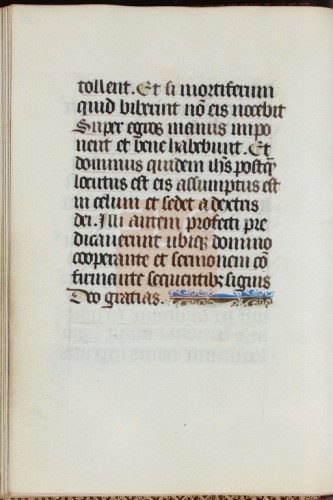 tollent. Et si mortiferum
quid biberint nō eis nocebit
Super egros manus impo
nent et bene habebunt. Et
dominus quidem ihs̄ postqȝ
locutus est eis assumptus est
in celum et sedet a dextris
dei. Illi autem profecti pre
dicauerunt ubiqȝ domino
cooperante et sermonem cō
firmante sequentibȝ signis
Deo gratias.